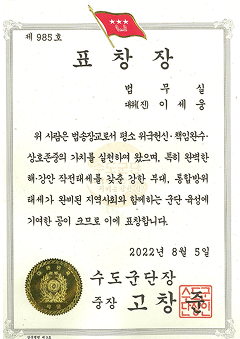 제 985호
표 창 장
법 무 실
대위(진) 이 세 웅
위 사람은 법송장교로서 평소 위국헌신·책임완수·
상호존중의 가치를 실천하여 왔으며, 특히 완벽한
해·강안 작전태세를 갖춘 강한 부대, 통합방위
태세가 완비된 지역사회와 함께하는 군단 육성에
기여한 공이 크므로 이에 표창합니다.
2022년 8월 5일
수도군단장
중장 고창준